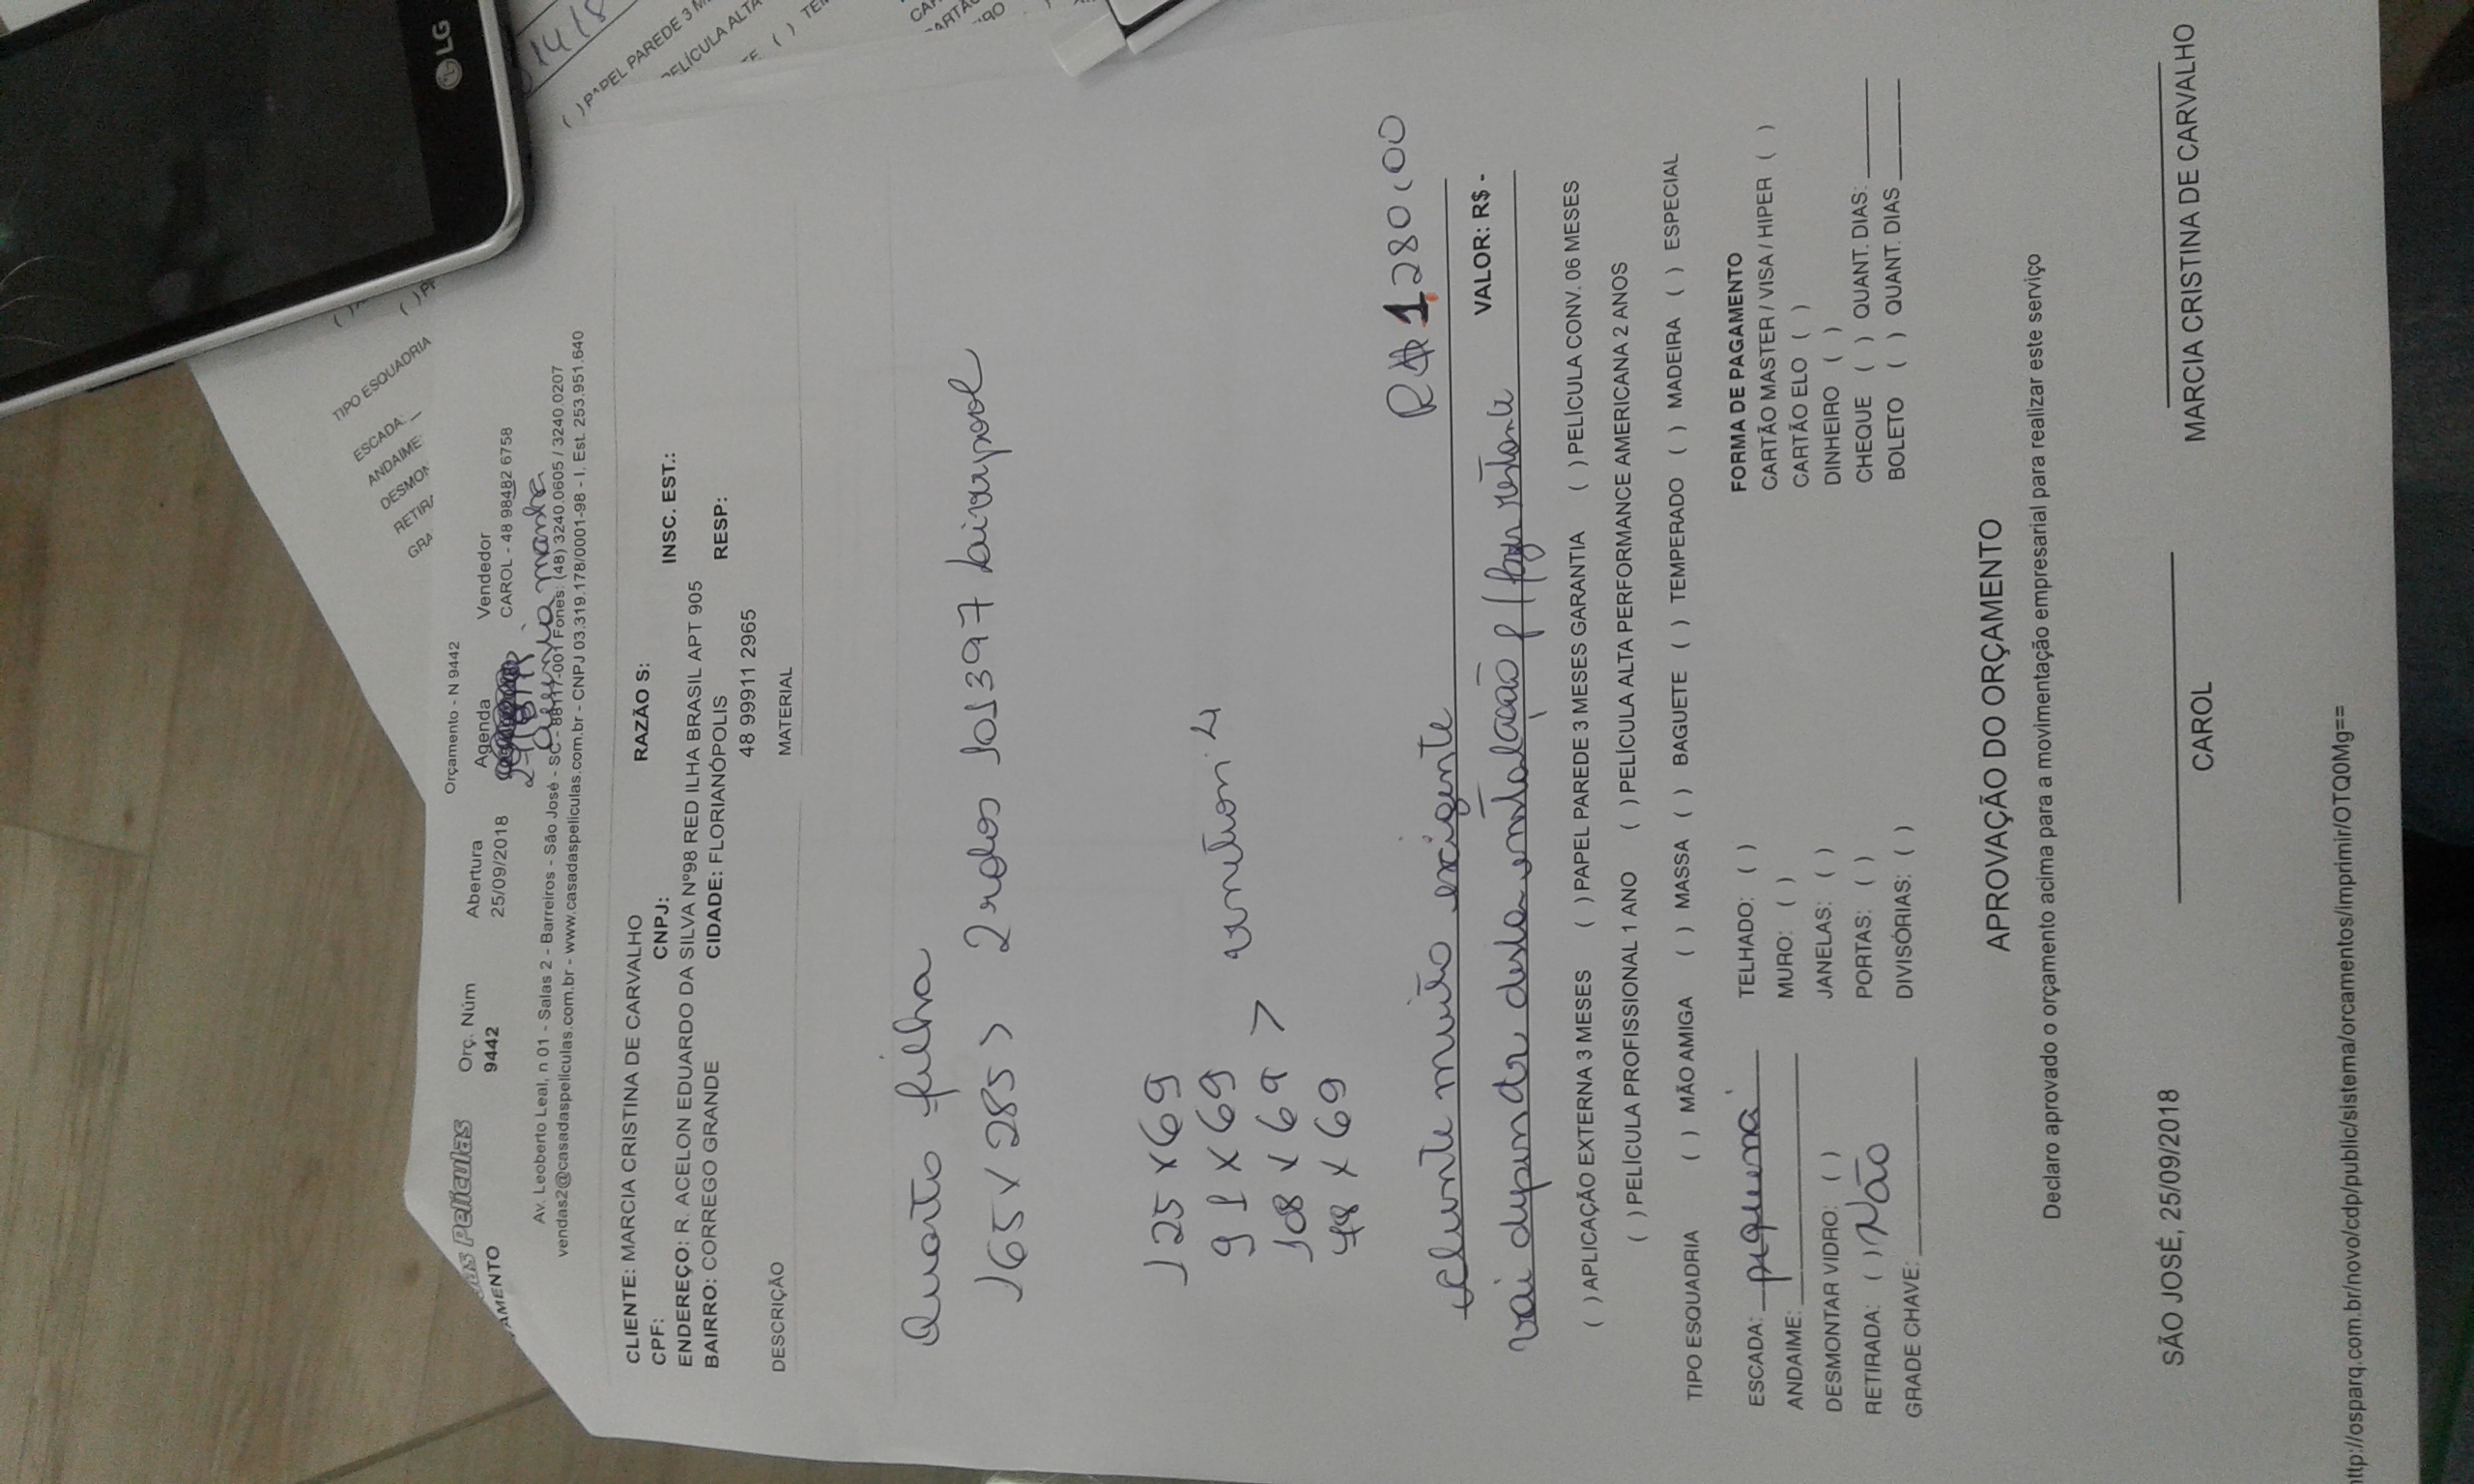 LG
14/8
( ) PAPEL PAREDE 3 M
PELÍCULA ALTA
TIPO ESQUADRIA
ESCADA:
ANDAIME:
DESMON
RETIRA
GRA
Orçamento - N 9442
as Películas
AMENTO
Orç. Núm
9442
Abertura
25/09/2018
Agenda
Vendedor
CAROL - 48 98482 6758
manha
Av. Leoberto Leal, n 01 - Salas 2 - Barreiros - São José - SC - 88117-001 Fones: (48) 3240.0605 / 3240.0207
vendas2@casadaspeliculas.com.br - www.casadaspeliculas.com.br - CNPJ 03.319.178/0001-98 - I. Est. 253.951.640
CLIENTE: MARCIA CRISTINA DE CARVALHO RAZÃO S:
CPF: CNPJ: INSC. EST.:
ENDEREÇO: R. ACELON EDUARDO DA SILVA Nº98 RED ILHA BRASIL APT 905
BAIRRO: CORREGO GRANDE CIDADE: FLORIANÓPOLIS RESP:
48 99911 2965
DESCRIÇÃO MATERIAL
Quarto filha
165 x 285 > 2 rolos 101397
125 x 69
91 x 69
108 x 69 >
48 x 69
R$ 1.280,00
cliente muito exigente
VALOR: R$ -
vai depender desta instalação p/ fazer restante
( ) APLICAÇÃO EXTERNA 3 MESES ( ) PAPEL PAREDE 3 MESES GARANTIA ( ) PELÍCULA CONV. 06 MESES
( ) PELÍCULA PROFISSIONAL 1 ANO ( ) PELÍCULA ALTA PERFORMANCE AMERICANA 2 ANOS
TIPO ESQUADRIA ( ) MÃO AMIGA ( ) MASSA ( ) BAGUETE ( ) TEMPERADO ( ) MADEIRA ( ) ESPECIAL
ESCADA: pequena
ANDAIME:
DESMONTAR VIDRO: ( )
RETIRADA: ( ) Não
GRADE CHAVE:
TELHADO: ( )
MURO: ( )
JANELAS: ( )
PORTAS: ( )
DIVISÓRIAS: ( )
FORMA DE PAGAMENTO
CARTÃO MASTER / VISA / HIPER ( )
CARTÃO ELO ( )
DINHEIRO ( )
CHEQUE ( ) QUANT. DIAS:
BOLETO ( ) QUANT. DIAS
APROVAÇÃO DO ORÇAMENTO
Declaro aprovado o orçamento acima para a movimentação empresarial para realizar este serviço
SÃO JOSÉ, 25/09/2018
CAROL
MARCIA CRISTINA DE CARVALHO
http://osparq.com.br/novo/cdp/public/sistema/orcamentos/imprimir/OTQ0Mg==